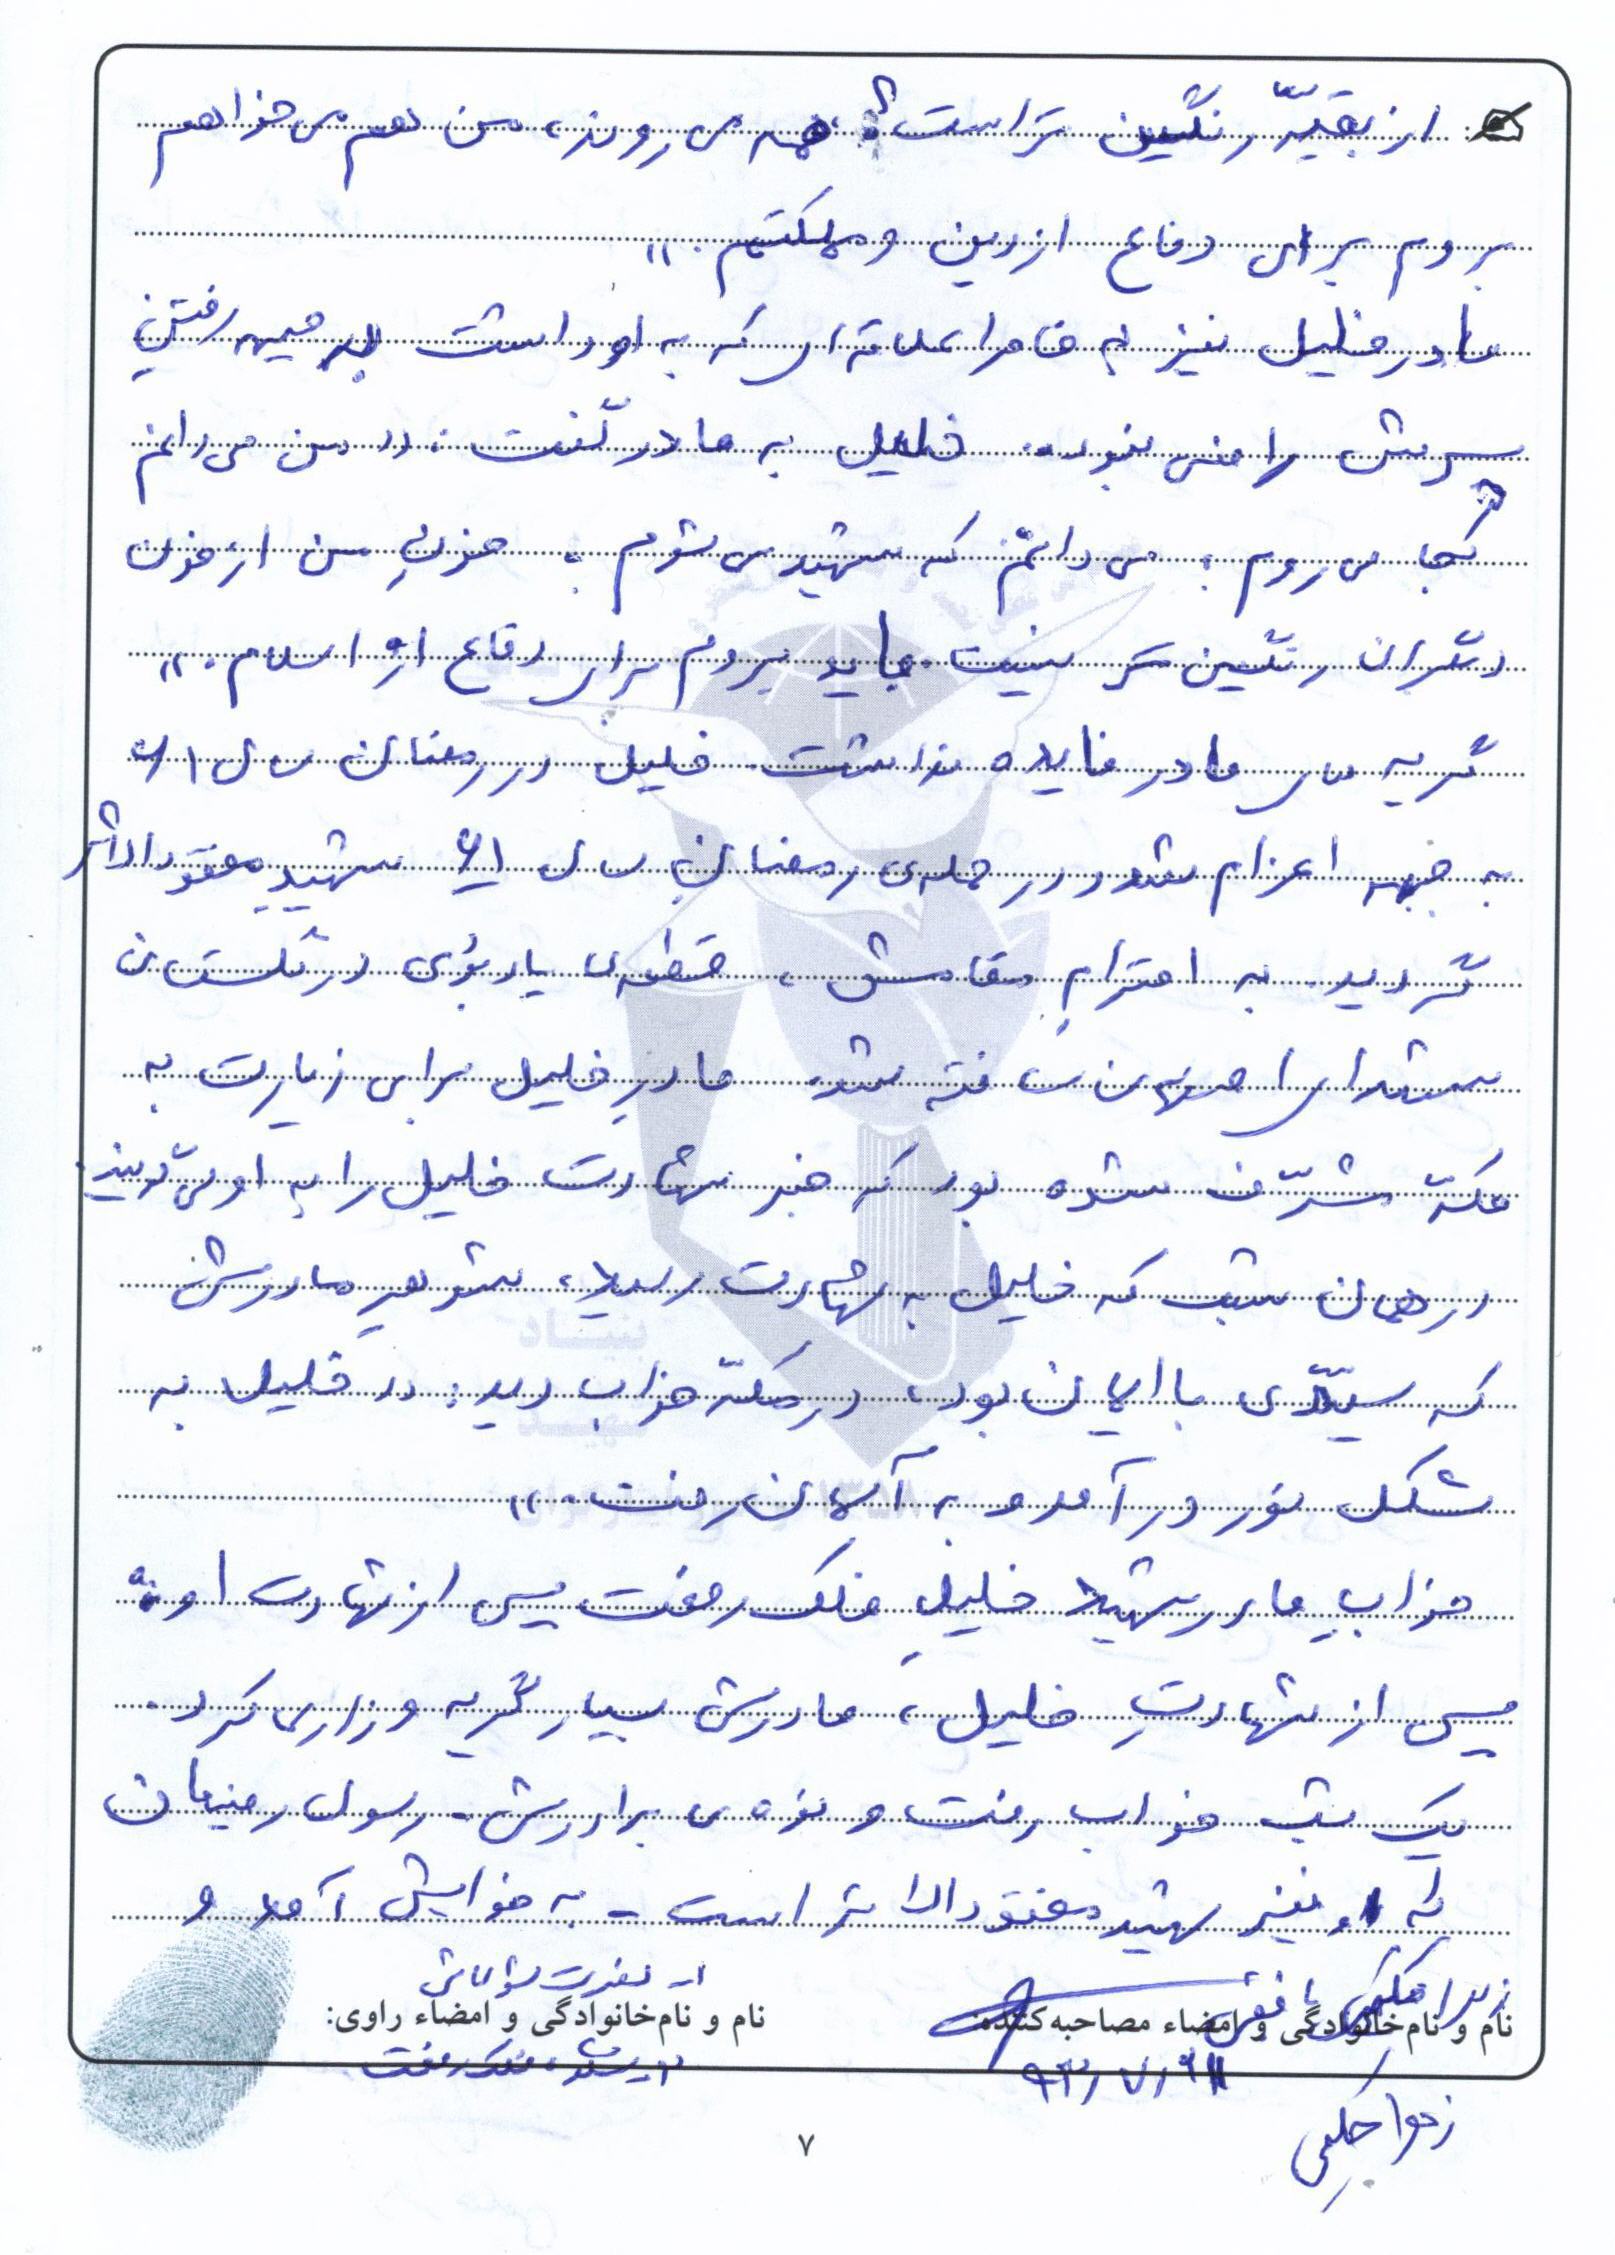 از بقیّه رنگین تر است؟ همه می روند، من هم می خواهم
بروم برای دفاع از دین و مملکتم.»
مادر خلیل نیز به خاطر علاقه ای که به او داشت به جبهه رفتنِ
پسرش راضی نبود. خلیل به مادر گفت: «من می دانم
کجا می روم؛ می دانم که شهید می شوم؛ خونِ من از خون
دیگران رنگین تر نیست. باید بروم برای دفاع از اسلام.»
گریه های مادر فایده نداشت. خلیل در رمضان سال ۶۱
به جبهه اعزام شد و در حمله ی رمضانِ سال ۶۱ شهیدِ مفقودالاثر
گردید. به احترامِ مقامش، قطعه ی یادبودی در گلستان
شهدای اصفهان ساخته شد. مادرِ خلیل برای زیارت به
مکّه مشرّف شده بود که خبر شهادت خلیل را به او می گویند.
در همان شب که خلیل به شهادت رسید، شوهرِ مادرش
که سیّدی با ایمان بود، در مکّه خواب دید: «خلیل به
شکل نور در آمد و به آسمان رفت.»
خوابِ مادر شهید خلیلِ فلک رفعت پس از شهادت او:
پس از شهادتِ خلیل، مادرش بسیار گریه و زاری کرد.
یک شب خواب رفت و نوه ی برادرش - رسول رضیان
که او نیز شهید مفقودالاثر است - به خوابش آمد و
۱- نصرت
نام و نام خانوادگی و امضاء مصاحبه کننده:
نام و نام خانوادگی و امضاء راوی:
۲- فلک رفعت
زهرا حکیمی
۷